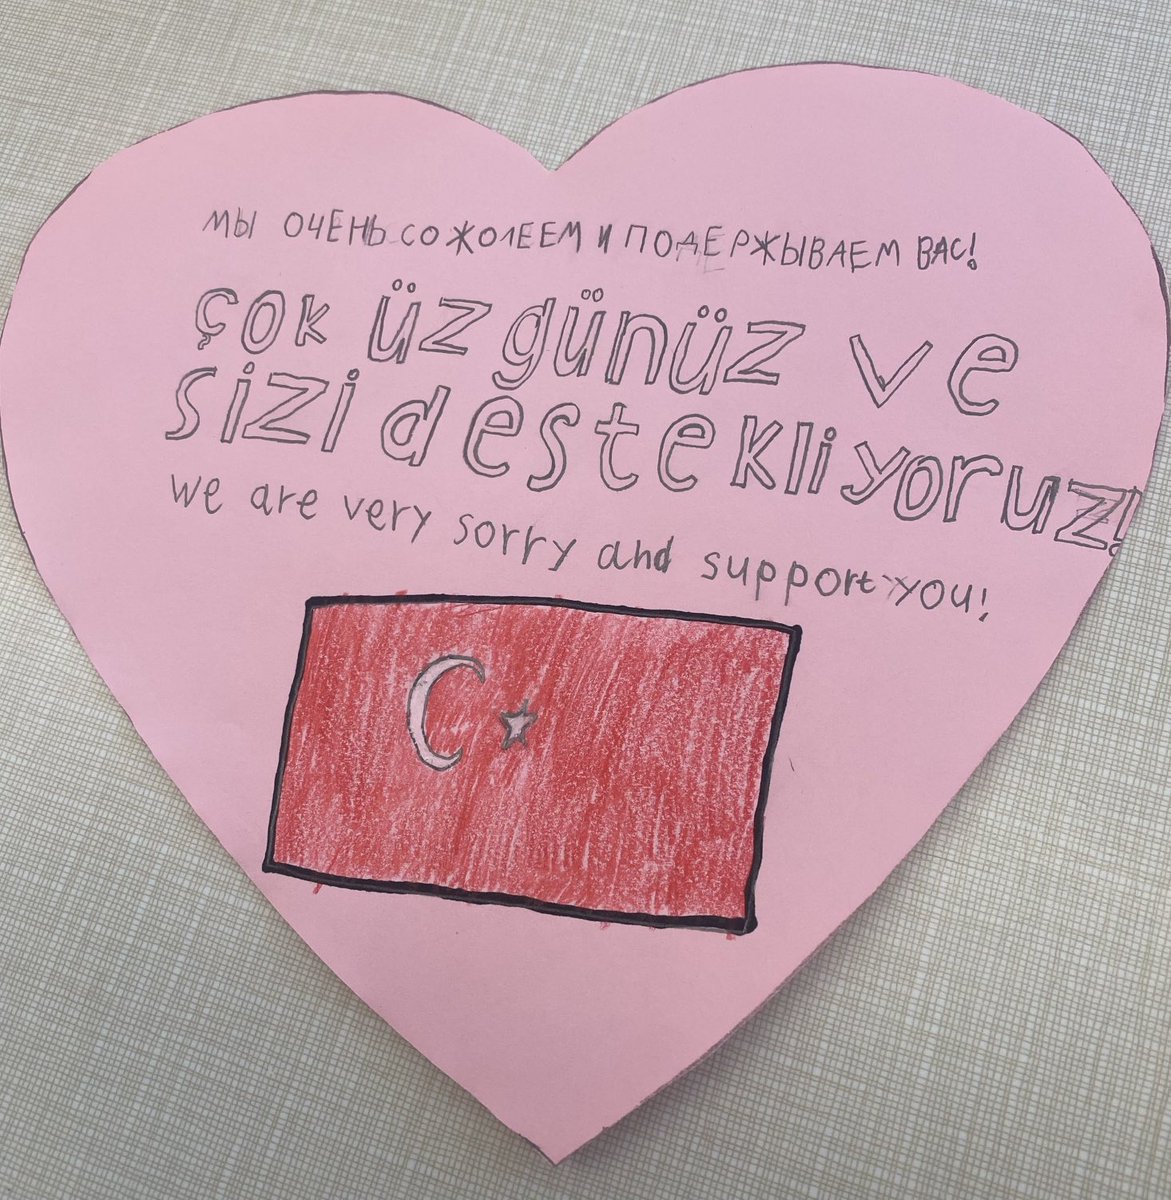 МЫ ОЧЕНЬ СОЖОЛЕЕМ И ПОДЕРЖЫВАЕМ ВАС!
çok üzgünüz ve
sizi destekliyoruz!
we are very sorry and support you!